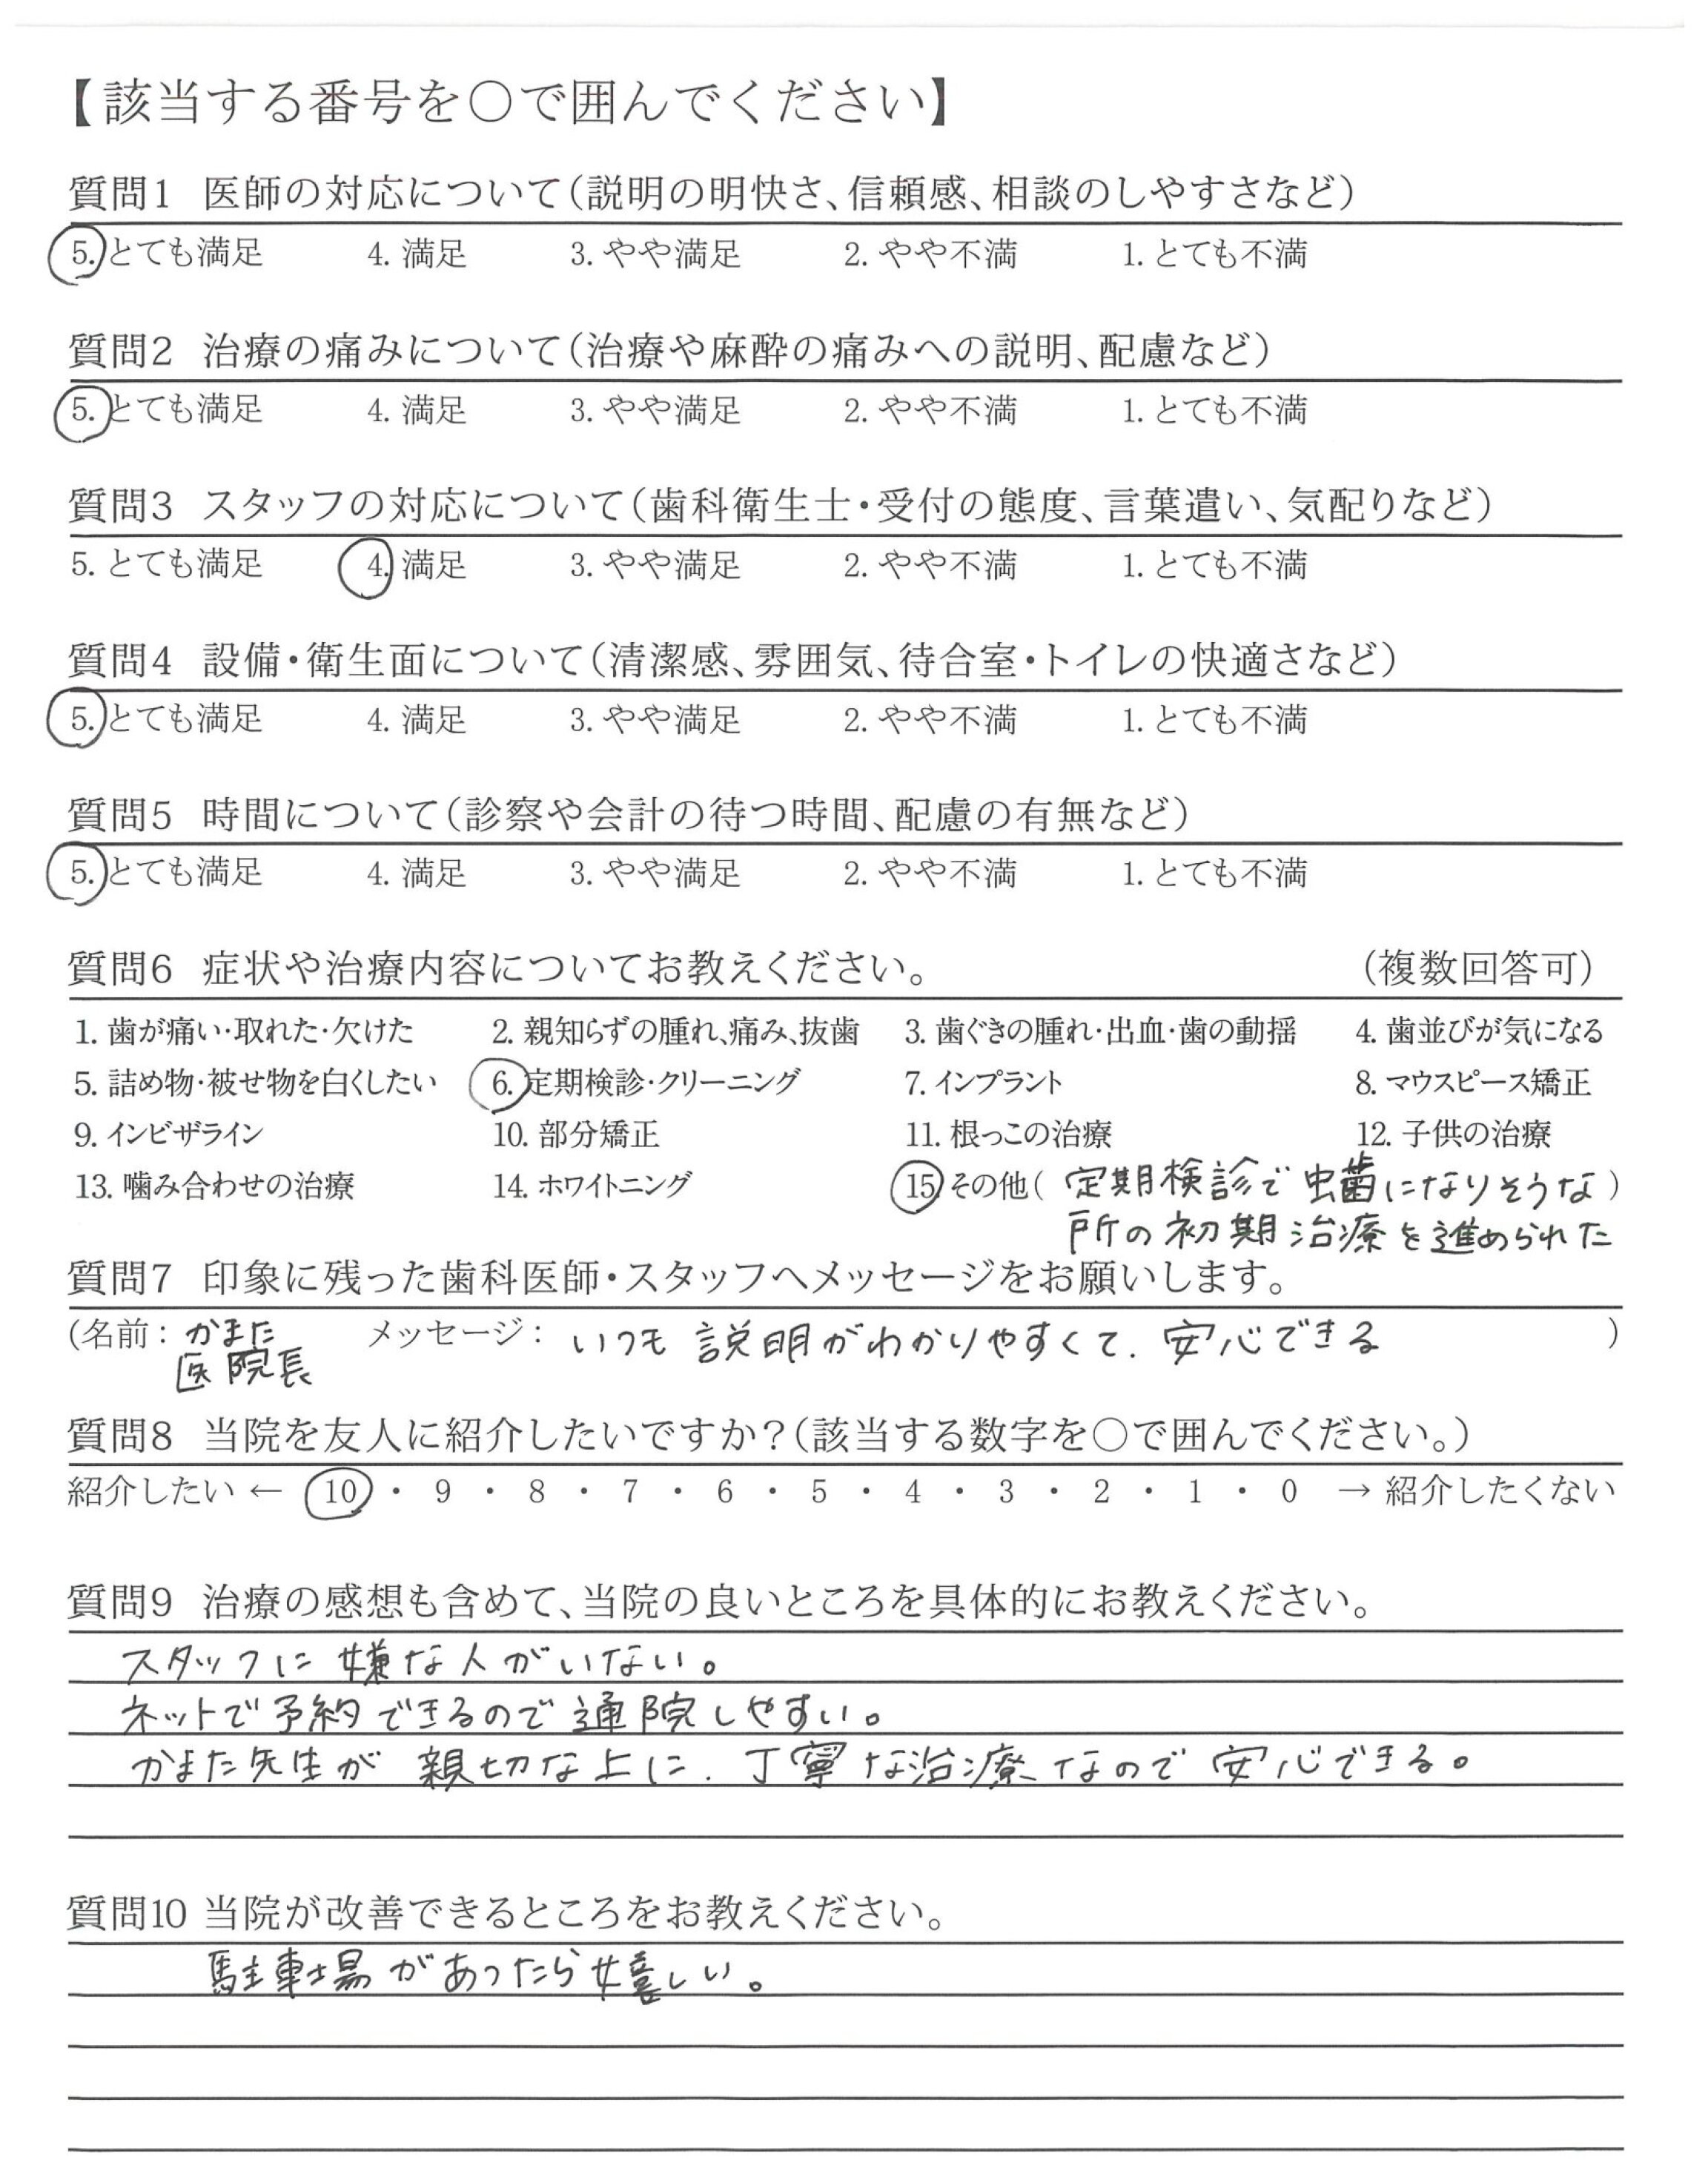 【該当する番号を○で囲んでください】
質問1 医師の対応について(説明の明快さ、信頼感、相談のしやすさなど)
5. とても満足 4. 満足 3. やや満足 2. やや不満 1. とても不満
質問2 治療の痛みについて(治療や麻酔の痛みへの説明、配慮など)
5. とても満足 4. 満足 3. やや満足 2. やや不満 1. とても不満
質問3 スタッフの対応について(歯科衛生士・受付の態度、言葉遣い、気配りなど)
5. とても満足 4. 満足 3. やや満足 2. やや不満 1. とても不満
質問4 設備・衛生面について(清潔感、雰囲気、待合室・トイレの快適さなど)
5. とても満足 4. 満足 3. やや満足 2. やや不満 1. とても不満
質問5 時間について(診察や会計の待つ時間、配慮の有無など)
5. とても満足 4. 満足 3. やや満足 2. やや不満 1. とても不満
質問6 症状や治療内容についてお教えください。 (複数回答可)
1. 歯が痛い・取れた・欠けた 2. 親知らずの腫れ、痛み、抜歯 3. 歯ぐきの腫れ・出血・歯の動揺 4. 歯並びが気になる
5. 詰め物・被せ物を白くしたい 6. 定期検診・クリーニング 7. インプラント 8. マウスピース矯正
9. インビザライン 10. 部分矯正 11. 根っこの治療 12. 子供の治療
13. 噛み合わせの治療 14. ホワイトニング 15. その他( 定期検診で虫歯になりそうな )
所の初期治療を進められた
質問7 印象に残った歯科医師・スタッフへメッセージをお願いします。
(名前: かまた メッセージ: いつも説明がわかりやすくて、安心できる )
医院長
質問8 当院を友人に紹介したいですか?(該当する数字を○で囲んでください。)
紹介したい ← 10 ・ 9 ・ 8 ・ 7 ・ 6 ・ 5 ・ 4 ・ 3 ・ 2 ・ 1 ・ 0 → 紹介したくない
質問9 治療の感想も含めて、当院の良いところを具体的にお教えください。
スタッフに嫌な人がいない。
ネットで予約できるので通院しやすい。
かまた先生が親切な上に、丁寧な治療なので安心できる。
質問10 当院が改善できるところをお教えください。
駐車場があったら嬉しい。